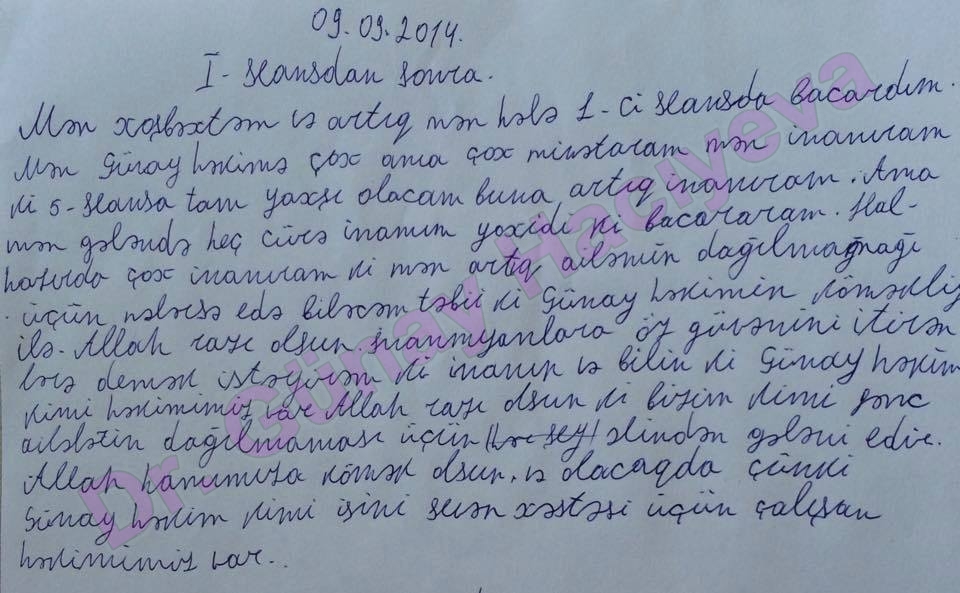 09.09.2014.
I - seansdan sonra.
Mən xoşbəxtəm və artıq mən hələ 1-ci seansda bacardım.
Mən Günay həkimə çox ama çox minətaram mən inanıram
ki 5-seansa tam yaxşı olacam buna artıq inanıram. Ama
mən gələndə heç cürə inamım yoxidi ki bacararam. Hal-
hazırda çox inanıram ki mən artıq ailəmin dağılmağmağı
üçün nələrsə edə biləcəm təbii ki Günay həkimin köməkliy
ilə. Allah razı olsun inanmıyanlara öz güvənini itirən
lərə demək istəyirəm ki inanın və bilin ki Günay həkim
kimi həkimimiz var Allah razı olsun ki bizim kimi gənc
ailələtin dağılmaması üçün (hər şey) əlindən gələni edir.
Allah hamımıza kömək olsun. və olacaqda çünki
Günay həkim kimi işini sevən xəstəsi üçün çalışan
həkimimiz var..
Dr. Günay Hacıyeva